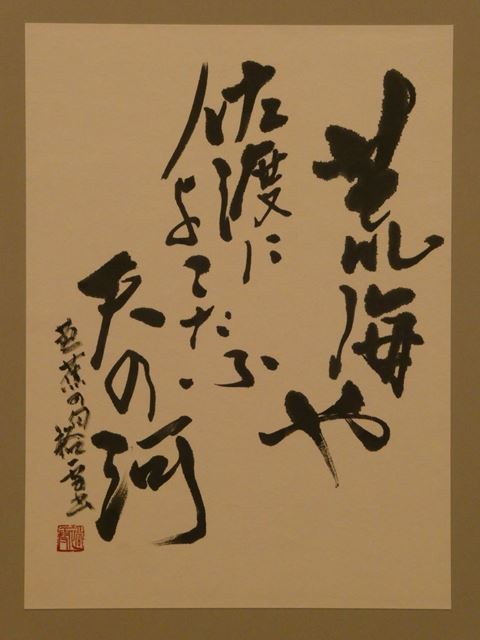 荒海や
佐渡に
よこたふ
天の河
芭蕉の句 裕雪書